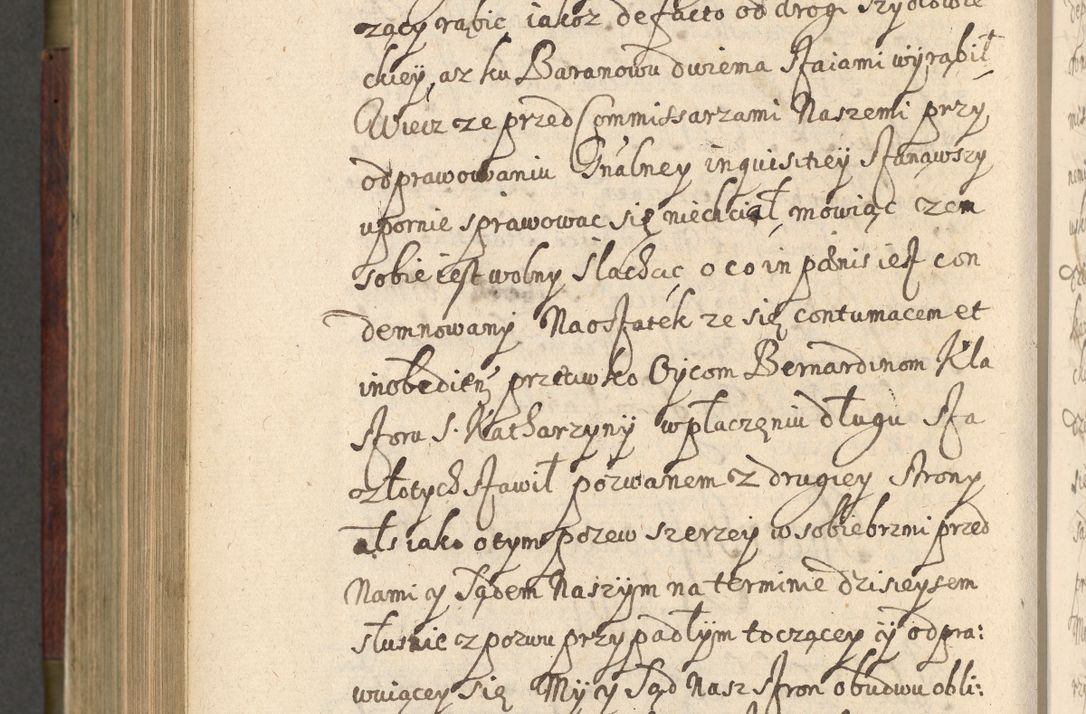 zący rąbic iakoz de facto od drogi Szydłowie
ckiey, az ku Baranowu dwiema staiami wyrąbił
Wiecz ze przed Commissarzami Naszemi przy
odprawowaniu Finalney inquisitiey stanąwszy
upornie sprawowac się niechciał, mowiąc ze
sobie iest wolny slachcic o co in pænis iest con
demnowany Na ostatek ze się contumacem et
inobedien przeciwko Oycom Bernardinom Kla
sztoru S. Katharzyny w płaczęniu długu sta
złotych stawił pozwanem z drugiey strony
als iako o tym pozew szerzey w sobie brzmi przed
Nami y Sądem Naszym na terminie dzisieyszem
słusnie z pozwu przypadłym toczącey y odpra:
wuiącey się My y Sąd Nasz stron obudwu obli: